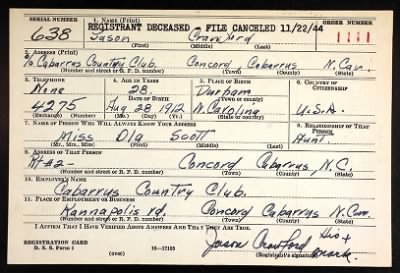 SERIAL NUMBER
1. NAME (Print)
REGISTRANT DECEASED - FILE CANCELED 11/22/44
ORDER NUMBER
638 Jason Crawford
(First) (Middle) (Last)
2. ADDRESS (Print)
℅ Cabarrus Country Club. Concord Cabarrus N. Car.
(Number and street or R. F. D. number) (Town) (County) (State)
3. TELEPHONE
4. AGE IN YEARS
5. PLACE OF BIRTH
6. COUNTRY OF CITIZENSHIP
None 28. Durham
DATE OF BIRTH
(Town or county)
4275 Aug 28 1912 N. Carolina U.S.A.
(Exchange) (Number) (Mo.) (Day) (Yr.) (State or country)
7. NAME OF PERSON WHO WILL ALWAYS KNOW YOUR ADDRESS
8. RELATIONSHIP OF THAT PERSON
Miss Ola Scott Aunt.
(Mr., Mrs., Miss) (First) (Middle) (Last)
9. ADDRESS OF THAT PERSON
Rt #2- Concord Cabarrus N.C.
(Number and street or R. F. D. number) (Town) (County) (State)
10. EMPLOYER'S NAME
Cabarrus Country Club.
11. PLACE OF EMPLOYMENT OR BUSINESS
Kannapolis rd. Concord Cabarrus N. Car.
(Number and street or R. F. D. number) (Town) (County) (State)
I AFFIRM THAT I HAVE VERIFIED ABOVE ANSWERS AND THAT THEY ARE TRUE.
REGISTRATION CARD
D. S. S. Form 1
(over)
16-17105
Jason Crawford His x mark.
(Registrant's signature)